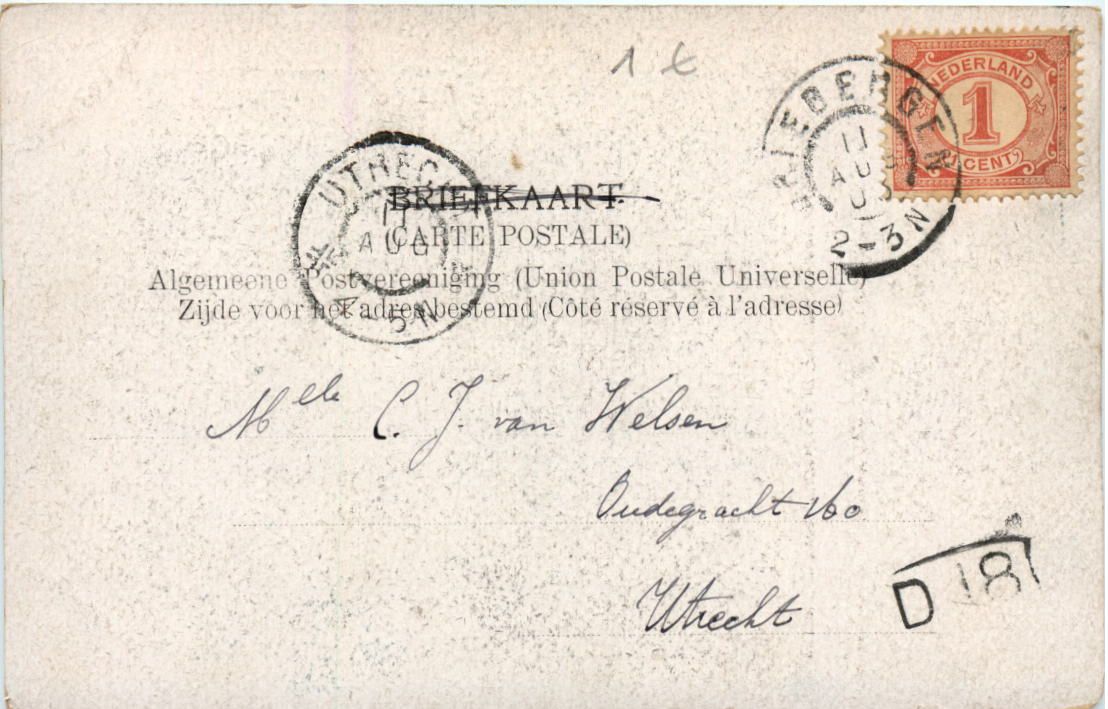 1 €
NEDERLAND
1
(1 CENT)
DRIEBERGEN
11
AUG
03
2-3N
UTRECHT
11
AUG
5N
BRIEFKAART.
(CARTE POSTALE)
Algemeene Postvereeniging (Union Postale Universelle)
Zijde voor het adres bestemd (Côté réservé à l'adresse)
Melle C. J. van Welsen
Oudegracht 160
Utrecht
D 18